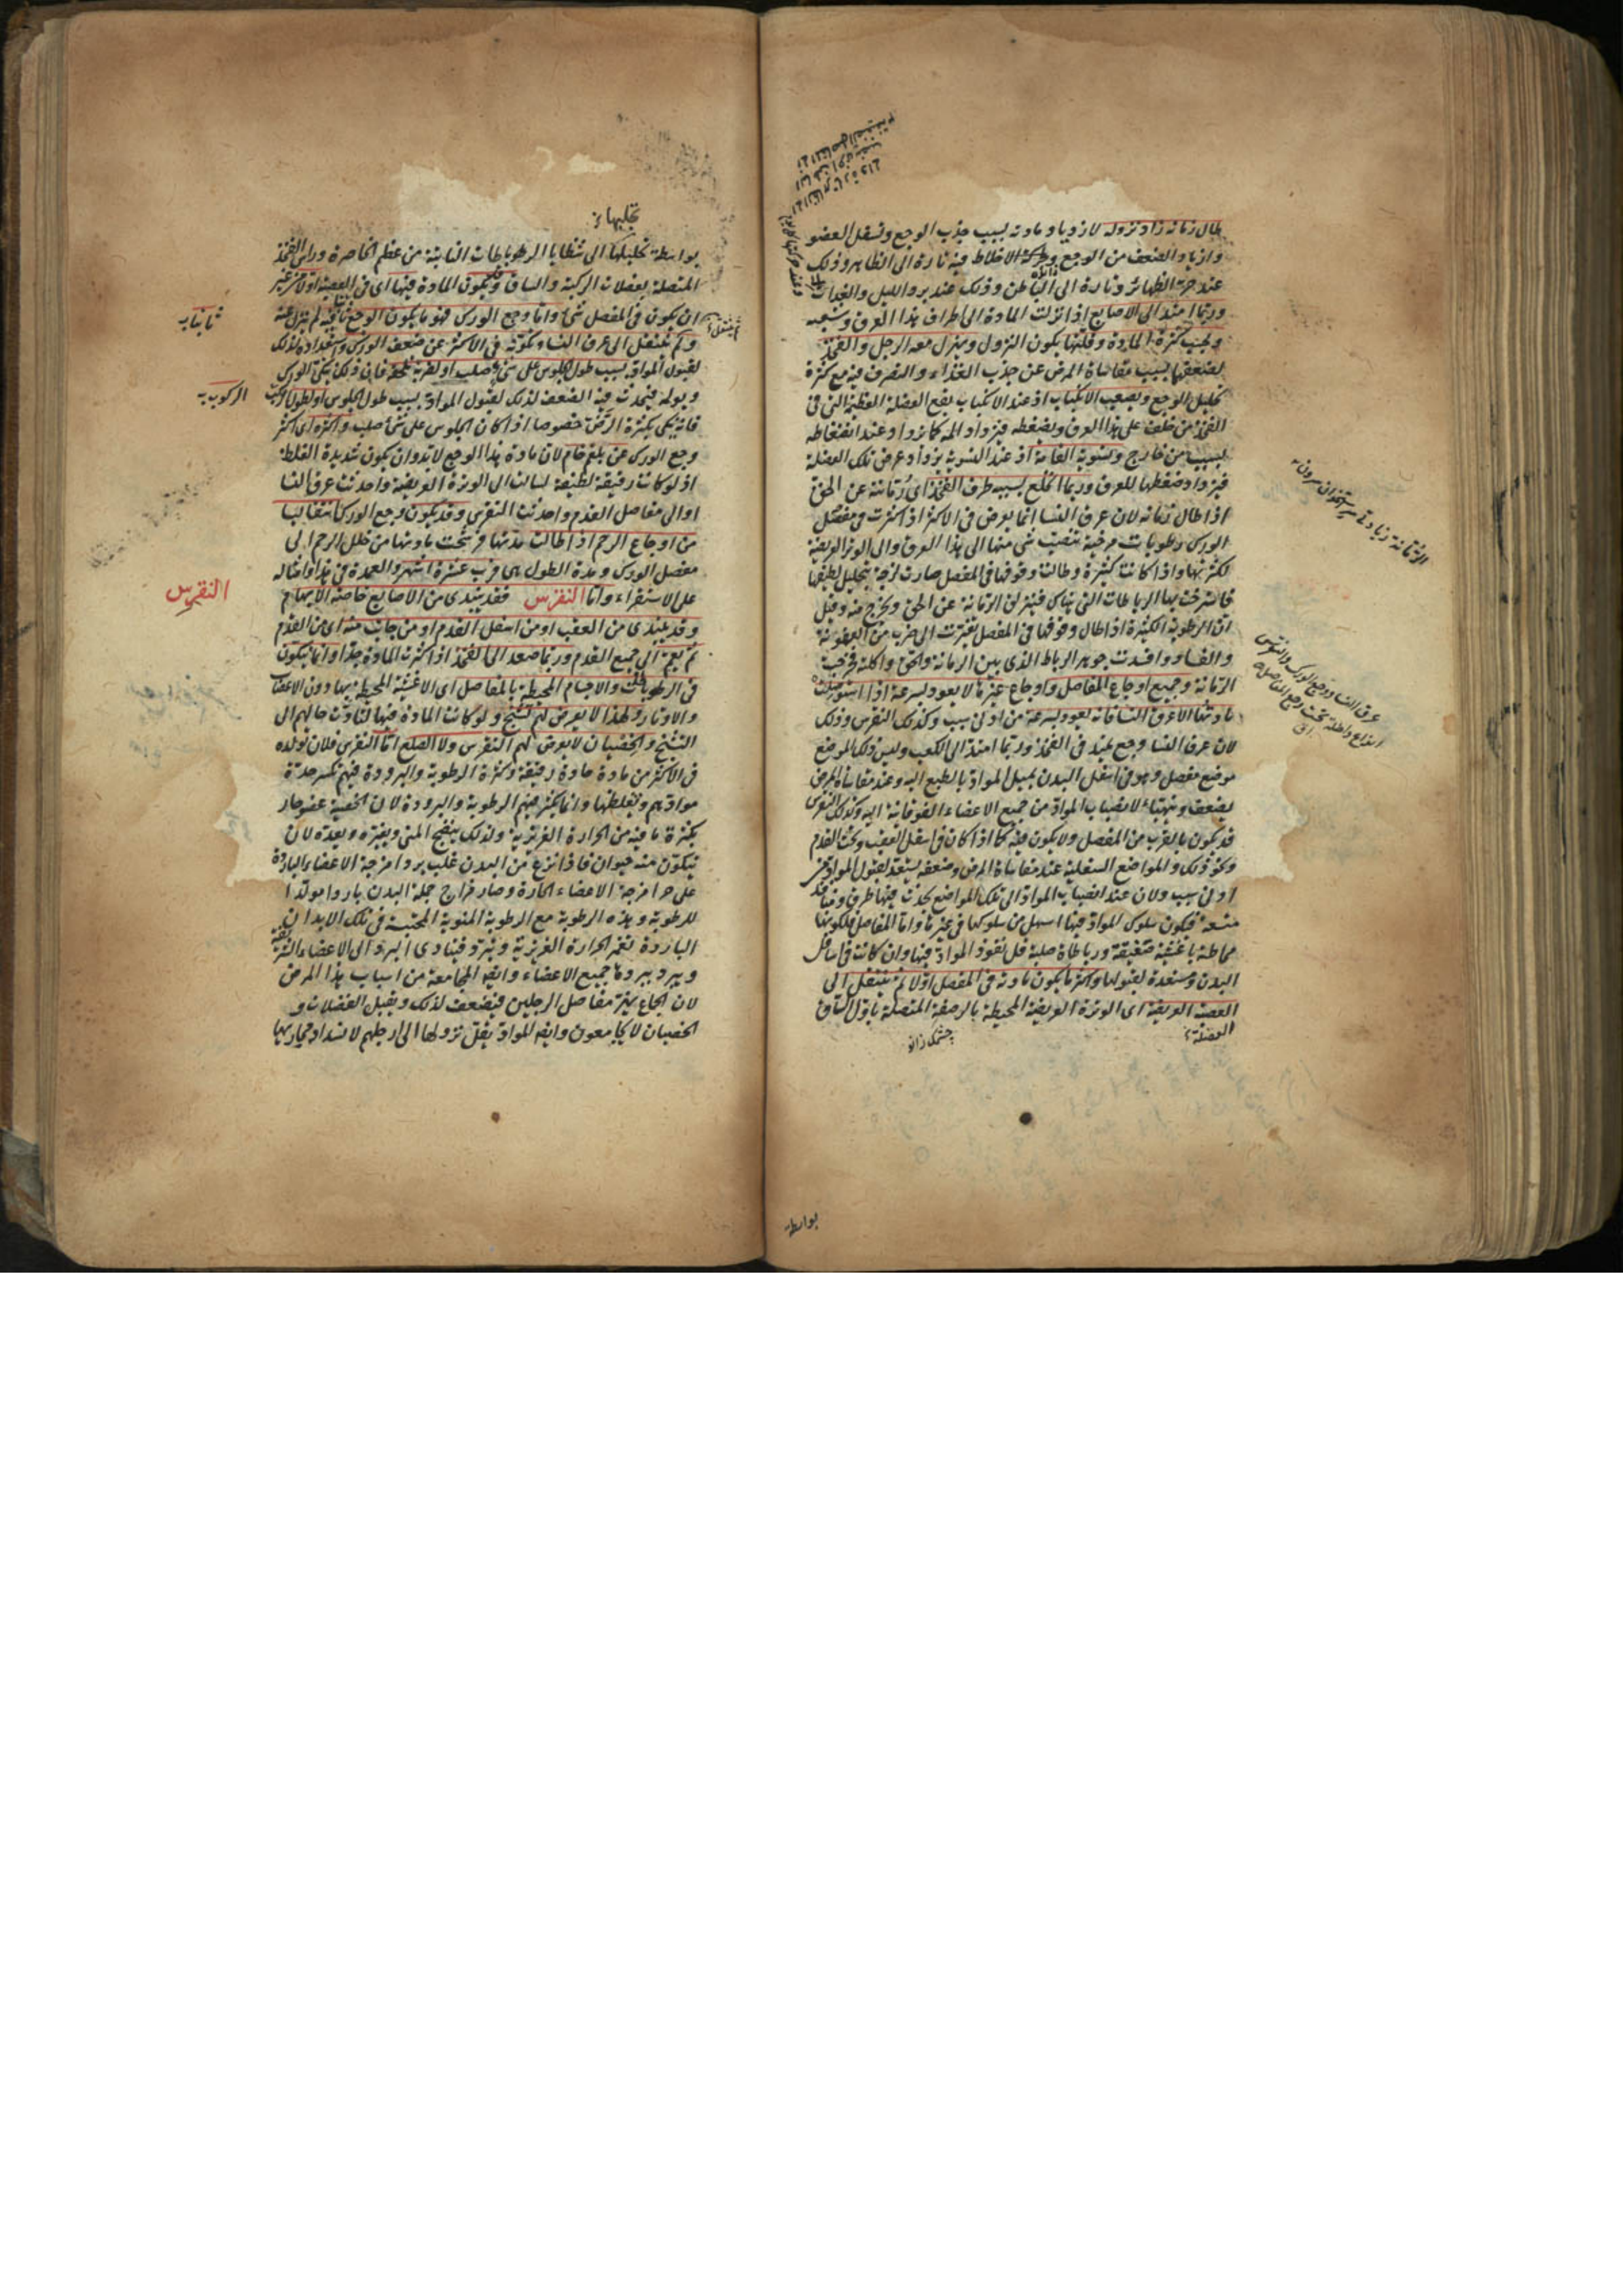 طال زمانه زاد نزوله لازدياد مادته بسبب جذب الوجع وتسفل العضو
وازدياد الضعف من الوجع وحركة الاخلاط فيه تارة الى الظاهر وذلك
عند حر الظهائر وتارة الى الباطن وذلك عند برد الليل والغدوات
وربما امتد الى الاصابع اذا نزلت المادة الى اطراف هذا العرق وشعبه
وبحسب كثرة المادة وقلتها يكون النزول ويهزل معه الرجل والفخذ
لضعفها بسبب مقاساة المرض عن جذب الغذاء والتصرف فيه مع كثرة
تحليل الوجع ويصعب الانكباب اذ عند الانكباب يقع العضلة العظيمة التى فى
الفخذ من خلف على هذا العرق ويضغطه فيزداد المه كما يزداد عند انضغاطه
بسبب من خارج وتسوية القامة اذ عند التسوية يزداد عرض تلك العضلة
فيزداد ضغطها للعرق وربما انخلع بسببه طرف الفخذ اى رمانته عن الحق
اذا طال زمانه لان عرق النسا انما يعرض فى الاكثر اذا كثرت فى مفصل
الورك رطوبات مرخية تنصب شى منها الى هذا العرق والى الوتر العريضة
لكثرتها واذا كانت كثيرة وطالت وقوفها فى المفصل صارت لزجة بتحليل لطيفها
فاسترخت بها الرباطات التى هناك فيزلق الرمانة عن الحق ويخرج منه وقيل
ان الرطوبة الكثيرة اذا طال وقوفها فى المفصل تغيرت الى ضرب من العفونة
والفساد وافسدت جوهر الرباط الذى بين الرمانة والحق واكلته فخرجت
الرمانة وجميع اوجاع المفاصل واوجاع غيرها لا يعود بسرعة اذا استوصلت
مادتها الا عرق النسا فانه يعود بسرعة من ادنى سبب وكذلك النقرس وذلك
لان عرق النسا وجع يمتد فى الفخذ وربما امتد الى الكعب وليس ذلك الموضع
موضع مفصل وهو فى اسفل البدن يميل المواد بالطبع اليه وعند مقاساة المرض
يضعف ويتهيأ لانصباب المواد من جميع الاعضاء الفوقانية اليه وكذلك النقرس
قد يكون بالقرب من المفصل ولا يكون فيه كما اذا كان فى اسفل العقب وتحت القدم
ونحو ذلك والمواضع السفلية عند مقاساة المرض وضعفه يستعد لقبول المواد من
ادنى سبب ولان عند انصباب المواد الى تلك المواضع يحدث فيها طرق ومنافذ
متسعة فيكون سلوك المواد فيها اسهل من سلوكها فى غيرها واما المفاصل فلكونها
محاطة باغشية صفيقة ورباطات صلبة قل نفوذ المواد فيها وان كانت فى اسافل
البدن ومستعدة لقبولها واكثر ما يكون مادته فى المفصل اولا ثم تنتقل الى
العصبة العريضة اى الوترة العريضة المحيطة بالرضفة المتصلة باول الساق
العضلة
چشمك زانو
بواسطة
عرق النسا ووجع الورك والنقرس
انواع داخلة تحت وجع المفاصل
تحليلها
بواسطة تحليلها الى شظايا الرباطات النابتة من عظم الخاصرة وراس الفخذ
المتصلة بعضلات الركبة والساق وقد يكون المادة فيها اى فى العصبة اولا من غير
ان يكون فى المفصل شى واما وجع الورك فهو ما يكون الوجع ثابتا فيه لم ينزل عنه
ولم ينتقل الى عرق النسا ويكون فى الاكثر عن ضعف الورك واستعداده لذلك
لقبول المواد بسبب طول الجلوس على شى صلب او لضربة تلحقه فان ذلك ينكى الورك
ويولمه فيحدث فيه الضعف لذلك لقبول المواد بسبب طول الجلوس او لطول الركوب
فانه ينكى بكثرة الرض خصوصا اذا كان الجلوس على شى صلب واكثره اى اكثر
وجع الورك عن بلغم خام لان مادة هذا الوجع لا بد وان يكون شديدة الغلظ
اذ لو كانت رقيقة لطيفة لسالت الى الوترة العريضة واحدثت عرق النسا
او الى مفاصل القدم واحدثت النقرس وقد يكون وجع الورك منتقلا
من اوجاع الرحم اذا طالت مدتها فرشحت مادتها من خلل الرحم الى
مفصل الورك ومدة الطول هى قرب عشرة اشهر والعمدة فى هذا وامثاله
على الاستقراء واما النقرس فقد يبتدى من الاصابع خاصة الابهام
وقد يبتدى من العقب او من اسفل القدم او من جانب منه اى من القدم
ثم يعم الى جميع القدم وربما صعد الى الفخذ اذا كثرت المادة جدا وانما يتكون
فى الرباطات والاجسام المحيطة بالمفاصل اى الاغشية المحيطة بها دون الاعصاب
والاوتار ولهذا لا يعرض لهم تشنج ولو كانت المادة فيها لتأدت حالهم الى
التشنج والخصيان لا يعرض لهم النقرس ولا الصلع اما النقرس فلان تولده
فى الاكثر من مادة حادة رقيقة وكثرة الرطوبة والبرودة فيهم تكسر حدة
موادهم وتغلظها وانما يكثر فيهم الرطوبة والبرودة لان الخصية عضو حار
بكثرة ما فيه من الحرارة الغريزية ولذلك ينضج المنى ويغيره ويعده لان
يتكون منه حيوان فاذا انزع من البدن غلب برد امزجة الاعضاء الباردة
على حر امزجة الاعضاء الحارة وصار مزاج جملة البدن باردا مولدا
للرطوبة وهذه الرطوبة مع الرطوبة المنوية المحتبسة فى تلك الابدان
الباردة تغمر الحرارة الغريزية وتبرد فيتادى البرد الى الاعضاء الشريفة
ويبرد ببردها جميع الاعضاء وايضا المجامعة من اسباب هذا المرض
لان الجماع يهز مفاصل الرجلين فيضعف لذلك ويقبل الفضلات و
الخصيان لا يجامعون وايضا المواد يقل نزولها الى ارجلهم لانسداد مجاريها
ثابتا
الركوب
النقرس